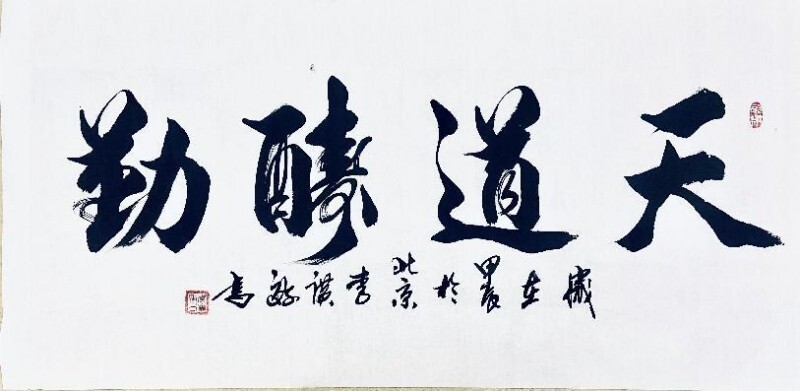 天道酬勤
歲在甲辰於北京李謀敬書